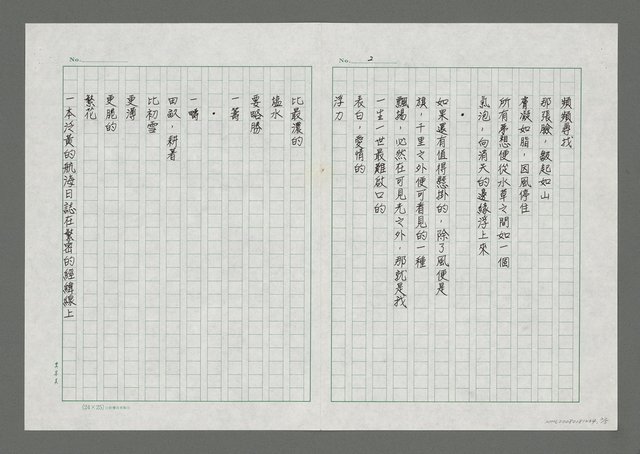 No. 2
頻頻尋找
那張臉，皺起如山
膏凝如脂，因風停住
所有夢想便從水草之間如一個
氣泡，向消失的邊緣浮上來
•
如果還有值得懸掛的，除了風便是
旗，千里之外便可看見的一種
飄揚，必然在可見光之外，那就是找
一生一世最難啟口的
表白，愛情的
浮力
No.
比最濃的
塩水
要略勝
一籌
•
一疇
田畝，耕著
比初雪
更薄
更脆的
繁花
一本泛黃的航海日誌在繁密的經緯線上
(24×25)